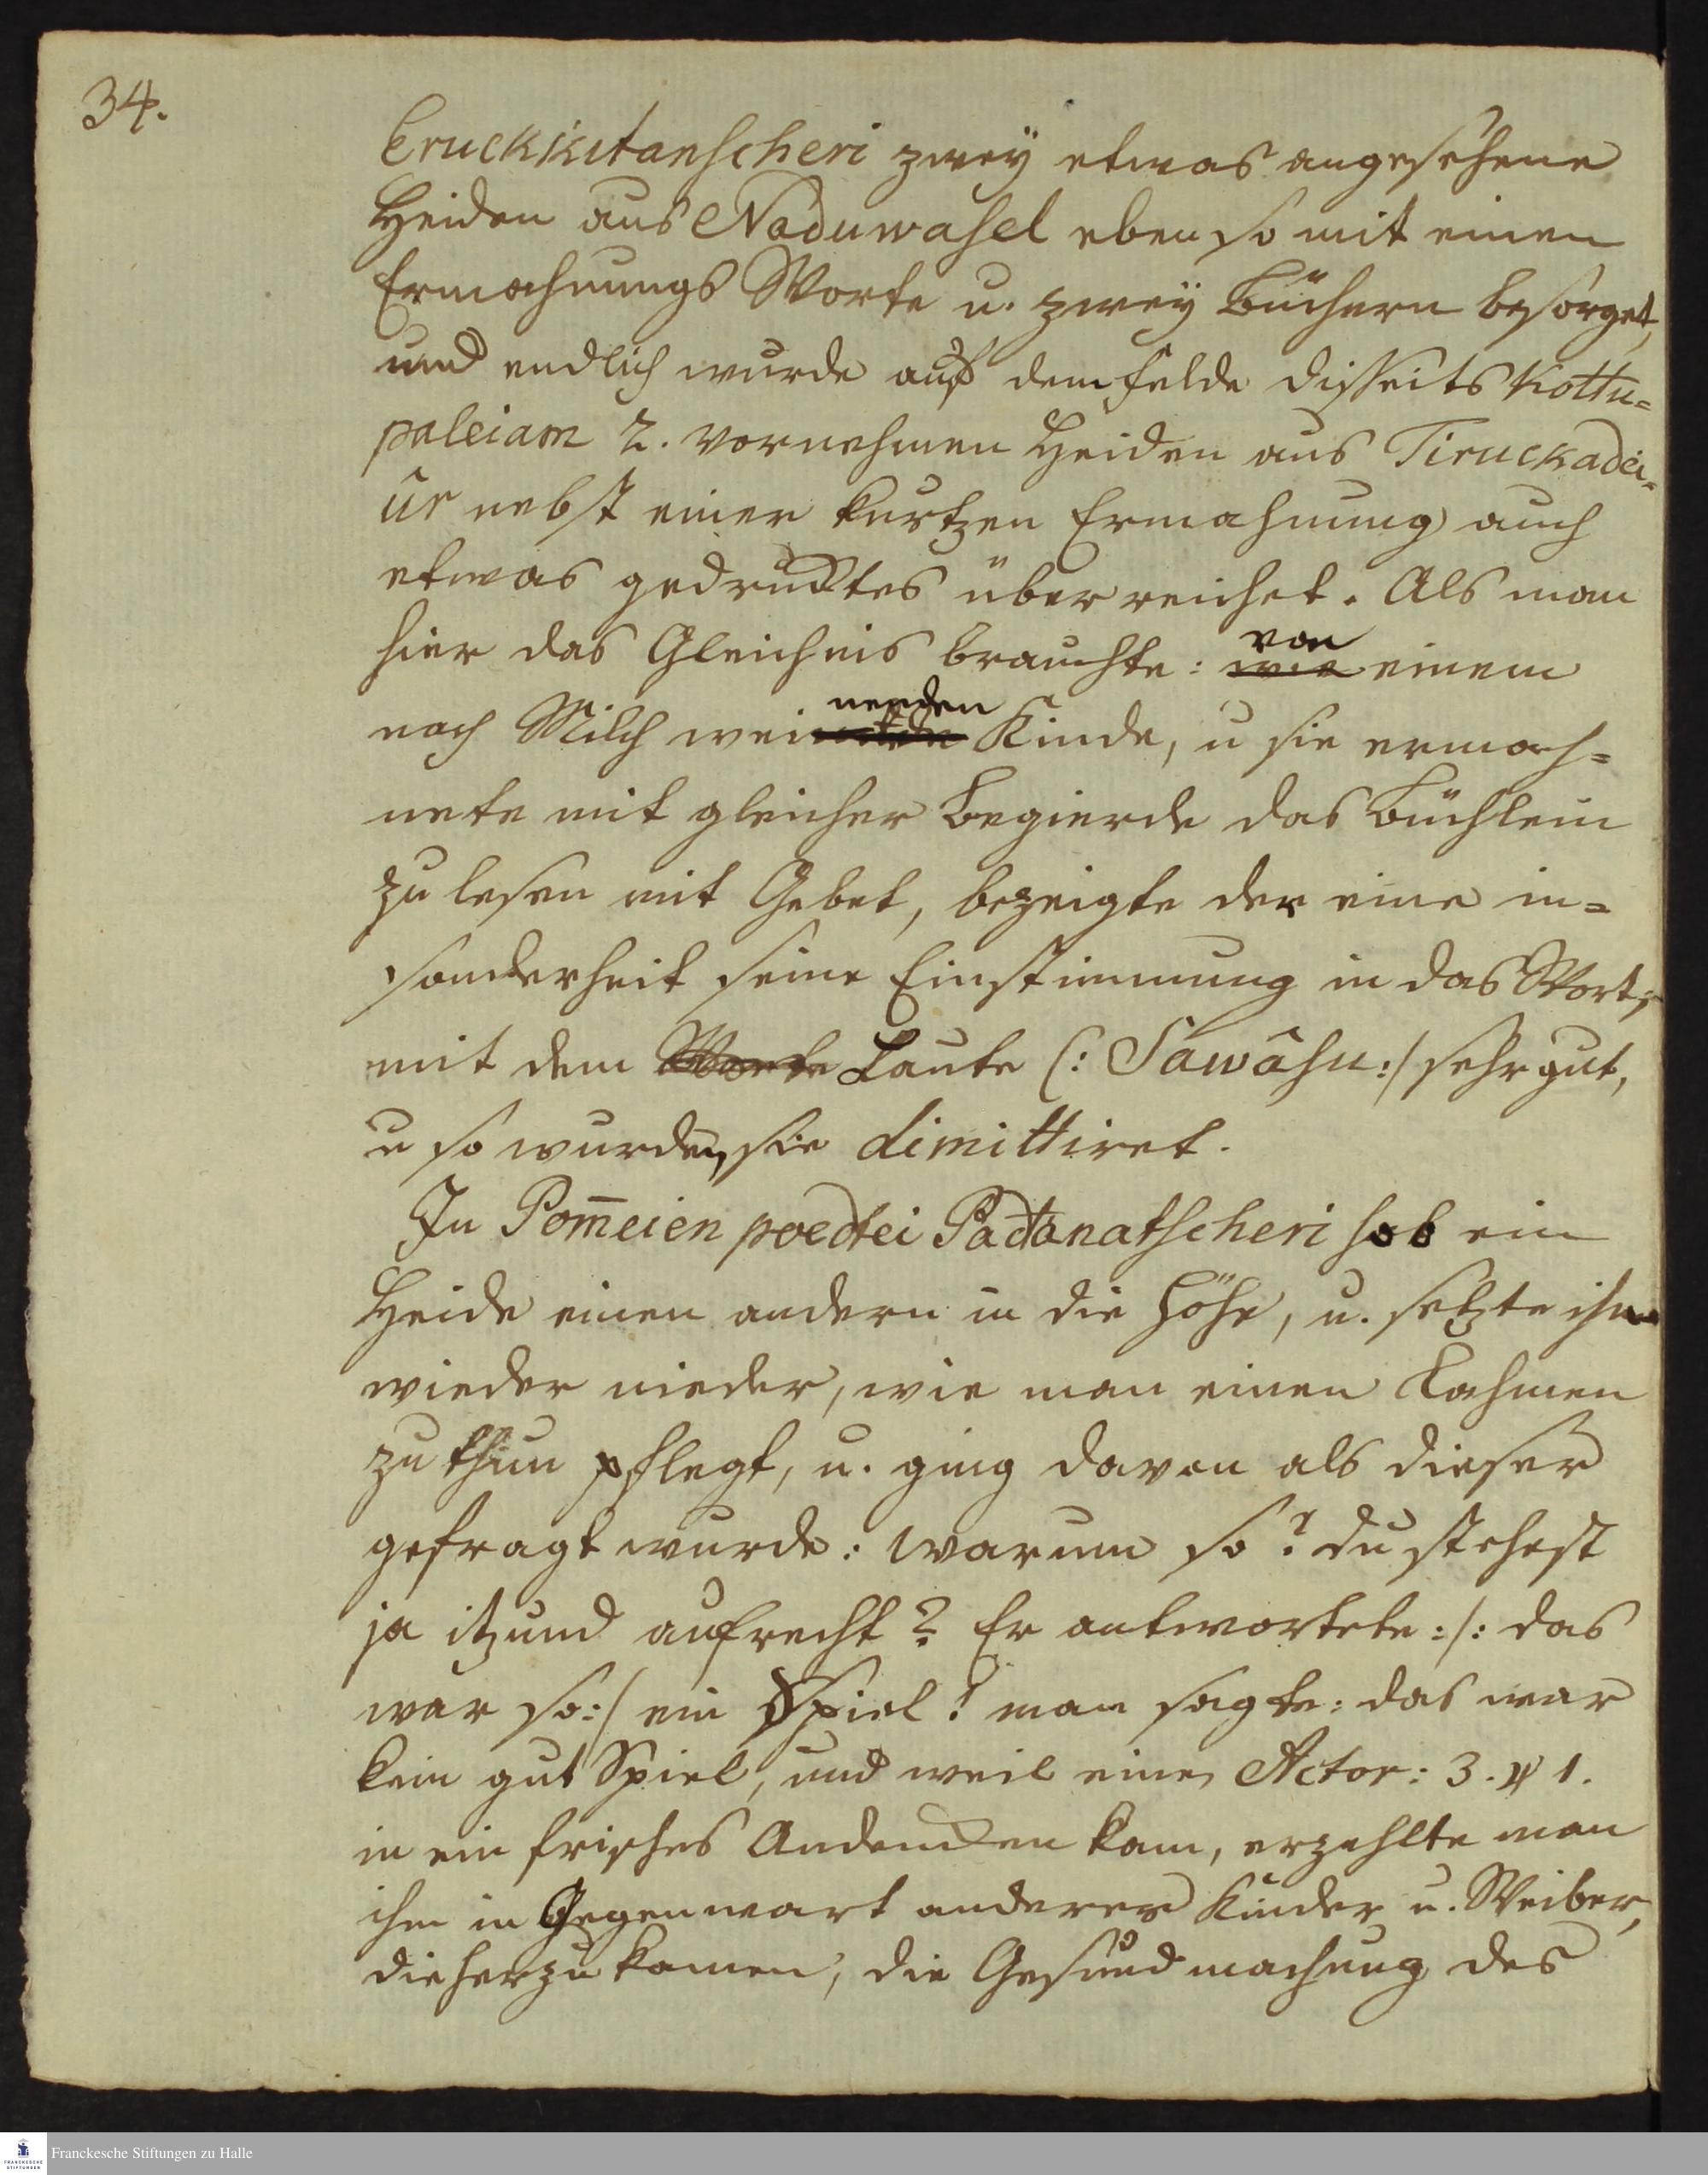 34.
Eruckkitanscheri zweÿ etwas angesehene
Heiden aus Naduwasel eben so mit einem
Ermahnungs Worte u. zweÿ Büchern besorget,
und endlich wurde auf dem Felde disseits Kottu=
paleiam 2. vornehmen Heiden aus Tiruckadei=
ûr nebst einer kurtzen Ermahnung auch
etwas gedrucktes überreichet. Als man
hier das Gleichnis brauchte: wie von einem
nach Milch weinenden Kinde, u sie ermah=
nete mit gleicher Begierde das Büchlein
zu lesen mit Gebet, bezeigte der eine in=
sonderheit seine Einstimmung in das Wort,
mit dem Worte Laute (: Sawâsu :/ sehr gut,
u so wurden sie dimittiret.
In Pom̅eien poedtei Padtanatscheri hob ein
Heide einen andern in die Höhe, u. setzte ihn
wieder nieder, wie man einen Lahmen
zu thun pflegt, u. ging davon als dieser
gefragt wurde: warum so? du stehest
ja itzund aufrecht? Er antwortete: /: das
war so :/ ein Spiel! man sagte: das war
kein gut Spiel, und weil einem Actor: 3. ℣ 1.
in ein frisches Andencken kam, erzehlte man
ihm in Gegenwart anderer Kinder u. Weiber,
die herzu kamen, die Gesundmachung des
Franckesche Stiftungen zu Halle